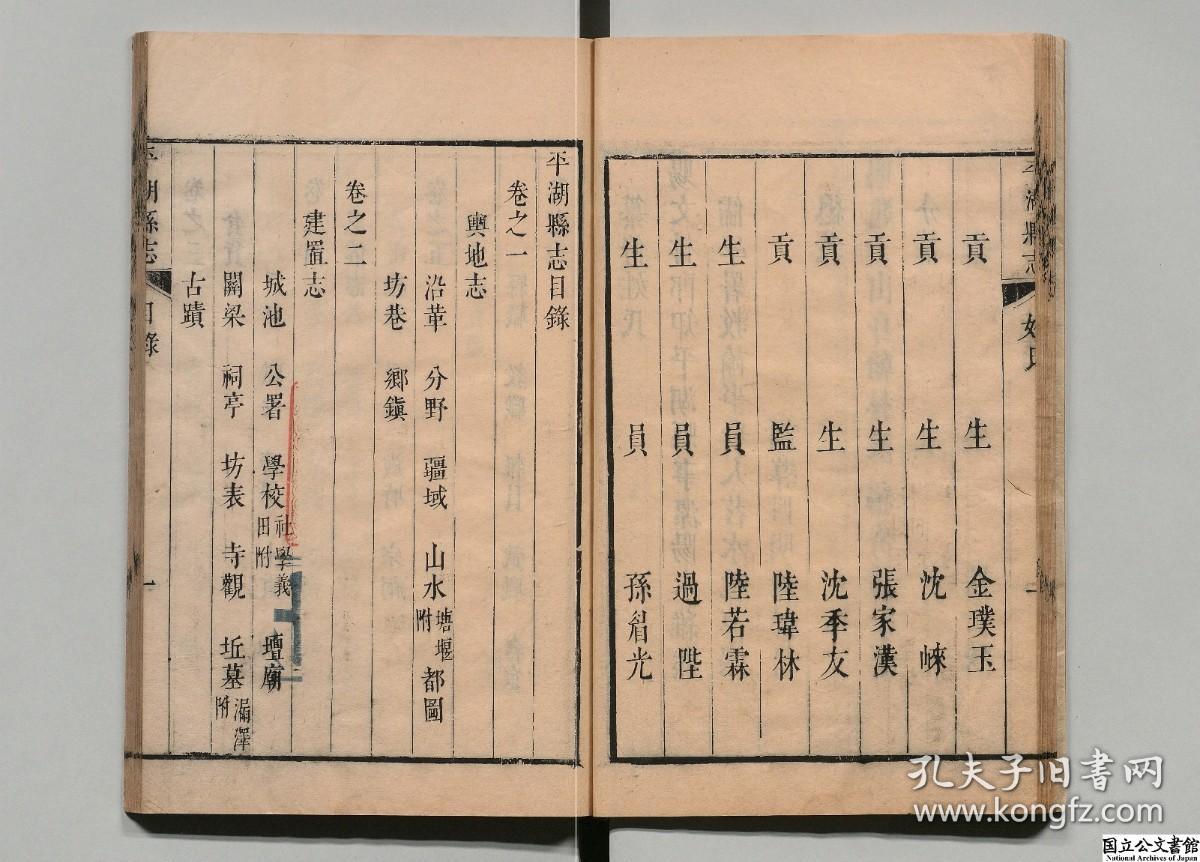 平湖縣志 姓氏 一
貢生 金璞玉
貢生 沈崍
貢生 張家漢
貢生 沈季友
貢監 陸瑋林
生員 陸若霖
生員 過陛
生員 孫眉光
平湖縣志目錄
卷之一
輿地志
沿革 分野 疆域 山水塘堰附 都圖
坊巷 鄉鎮
卷之二
建置志
城池 公署 學校社學義田附 壇廟
關梁 祠亭 坊表 寺觀 坵墓漏澤附
古蹟
平湖縣志 目錄 一
孔夫子旧书网
www.kongfz.com
国立公文書館
National Archives of Japan